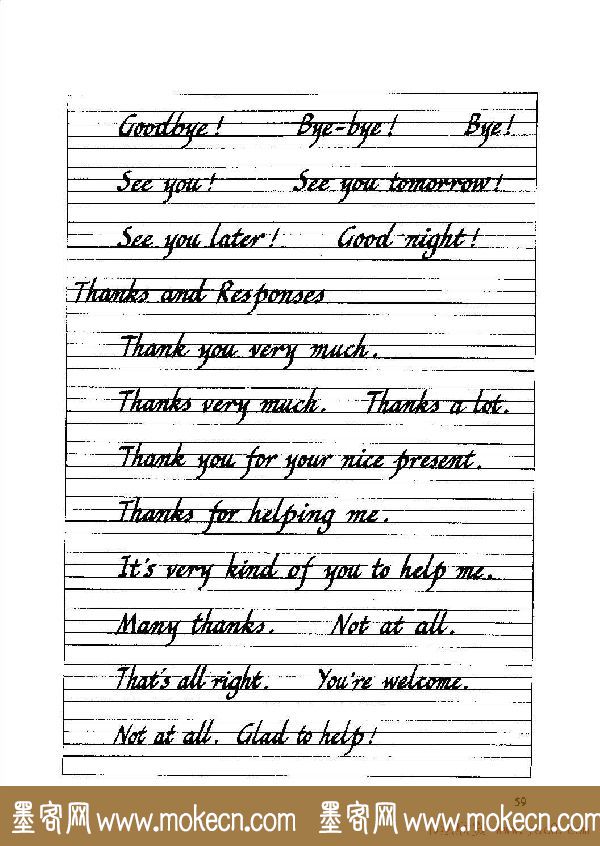 Goodbye! Bye-bye! Bye!
See you! See you tomorrow!
See you later! Good night!
Thanks and Responses
Thank you very much.
Thanks very much. Thanks a lot.
Thank you for your nice present.
Thanks for helping me.
It's very kind of you to help me.
Many thanks. Not at all.
That's all right. You're welcome.
Not at all. Glad to help!
59
墨客网 www.mokecn.com 墨客网 www.mokecn.com